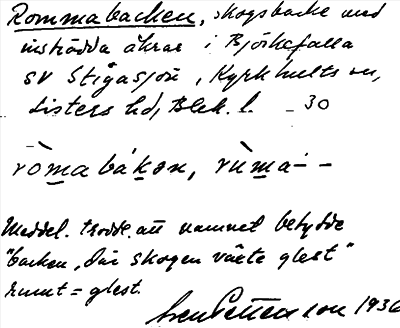 Rommabacken, skogsbacke med
inströdda åkrar i Björkefalla
SV Stigåsjön, Kyrkhults sn,
Listers hd, Blek. l. – 30
ròmabákən, rùma–́–
Meddel. trodde att namnet betydde
"backen, där skogen växte glest"
rumt = glest.
Sven Pettersson 1936